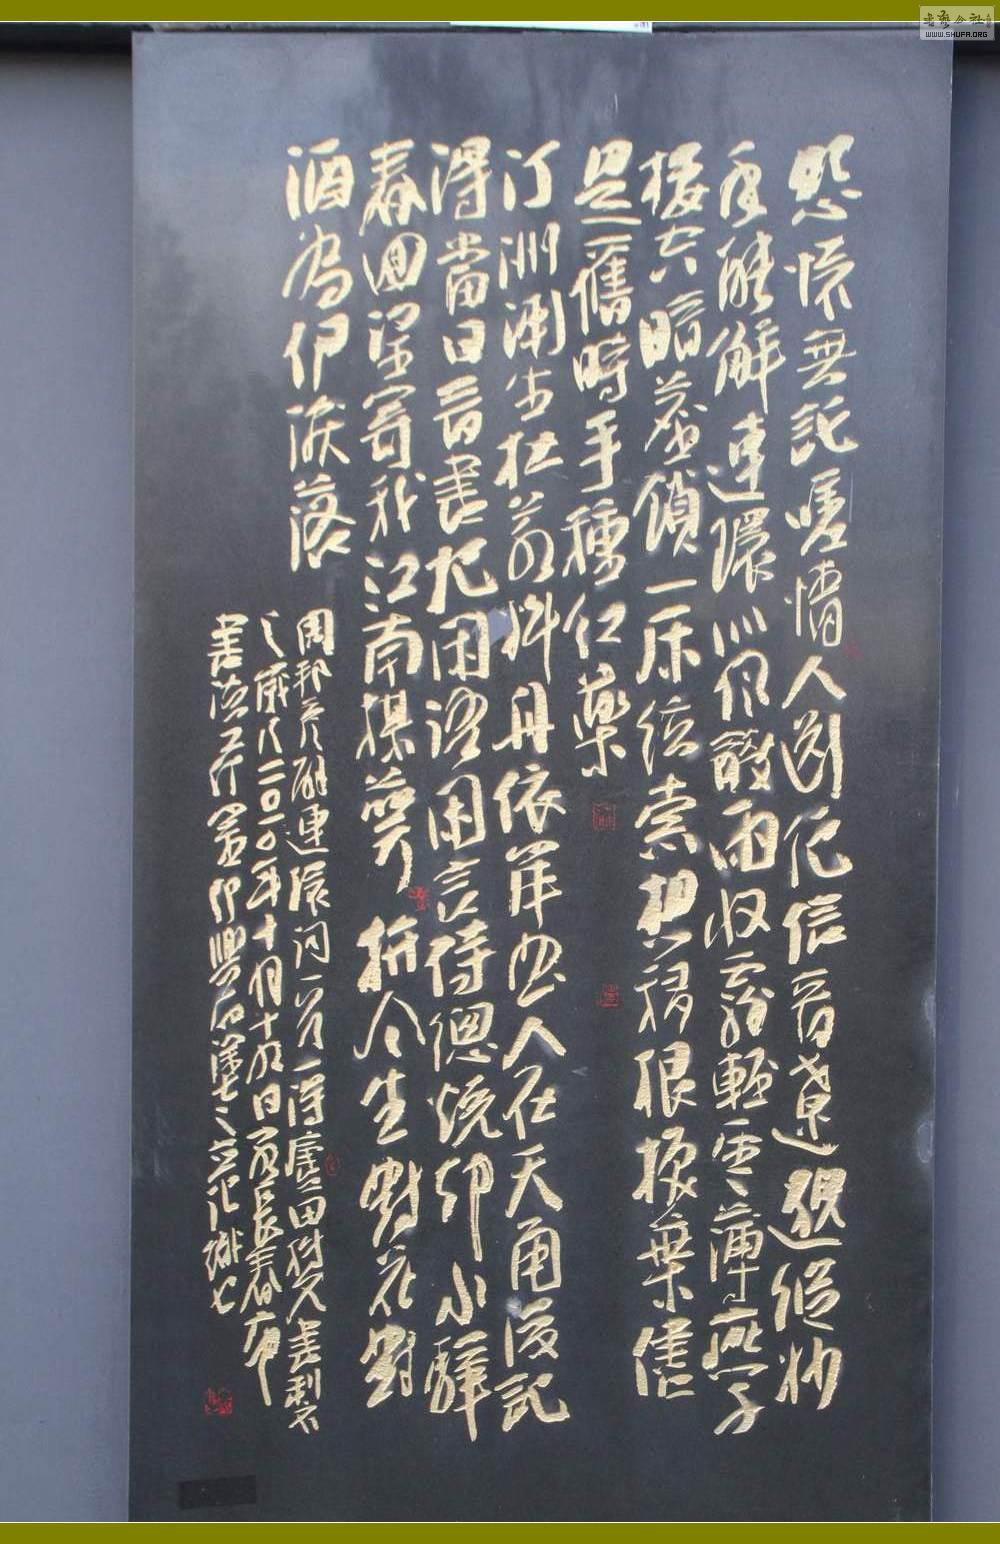 怨懷無託嗟情人斷絕信音遼邈縱妙
手能解連環似風散雨收霧輕雲薄燕子
樓空暗塵鎖一床絃索想移根換葉儘
是舊時手種紅藥
汀洲漸生杜若料舟依岸曲人在天角謾記
得當日音書把閑語閑言待總燒卻水驛
春回望寄我江南梅萼拚今生對花對
酒為伊淚落
周邦彥解連環詞一首
書法
WWW.SHUFA.ORG